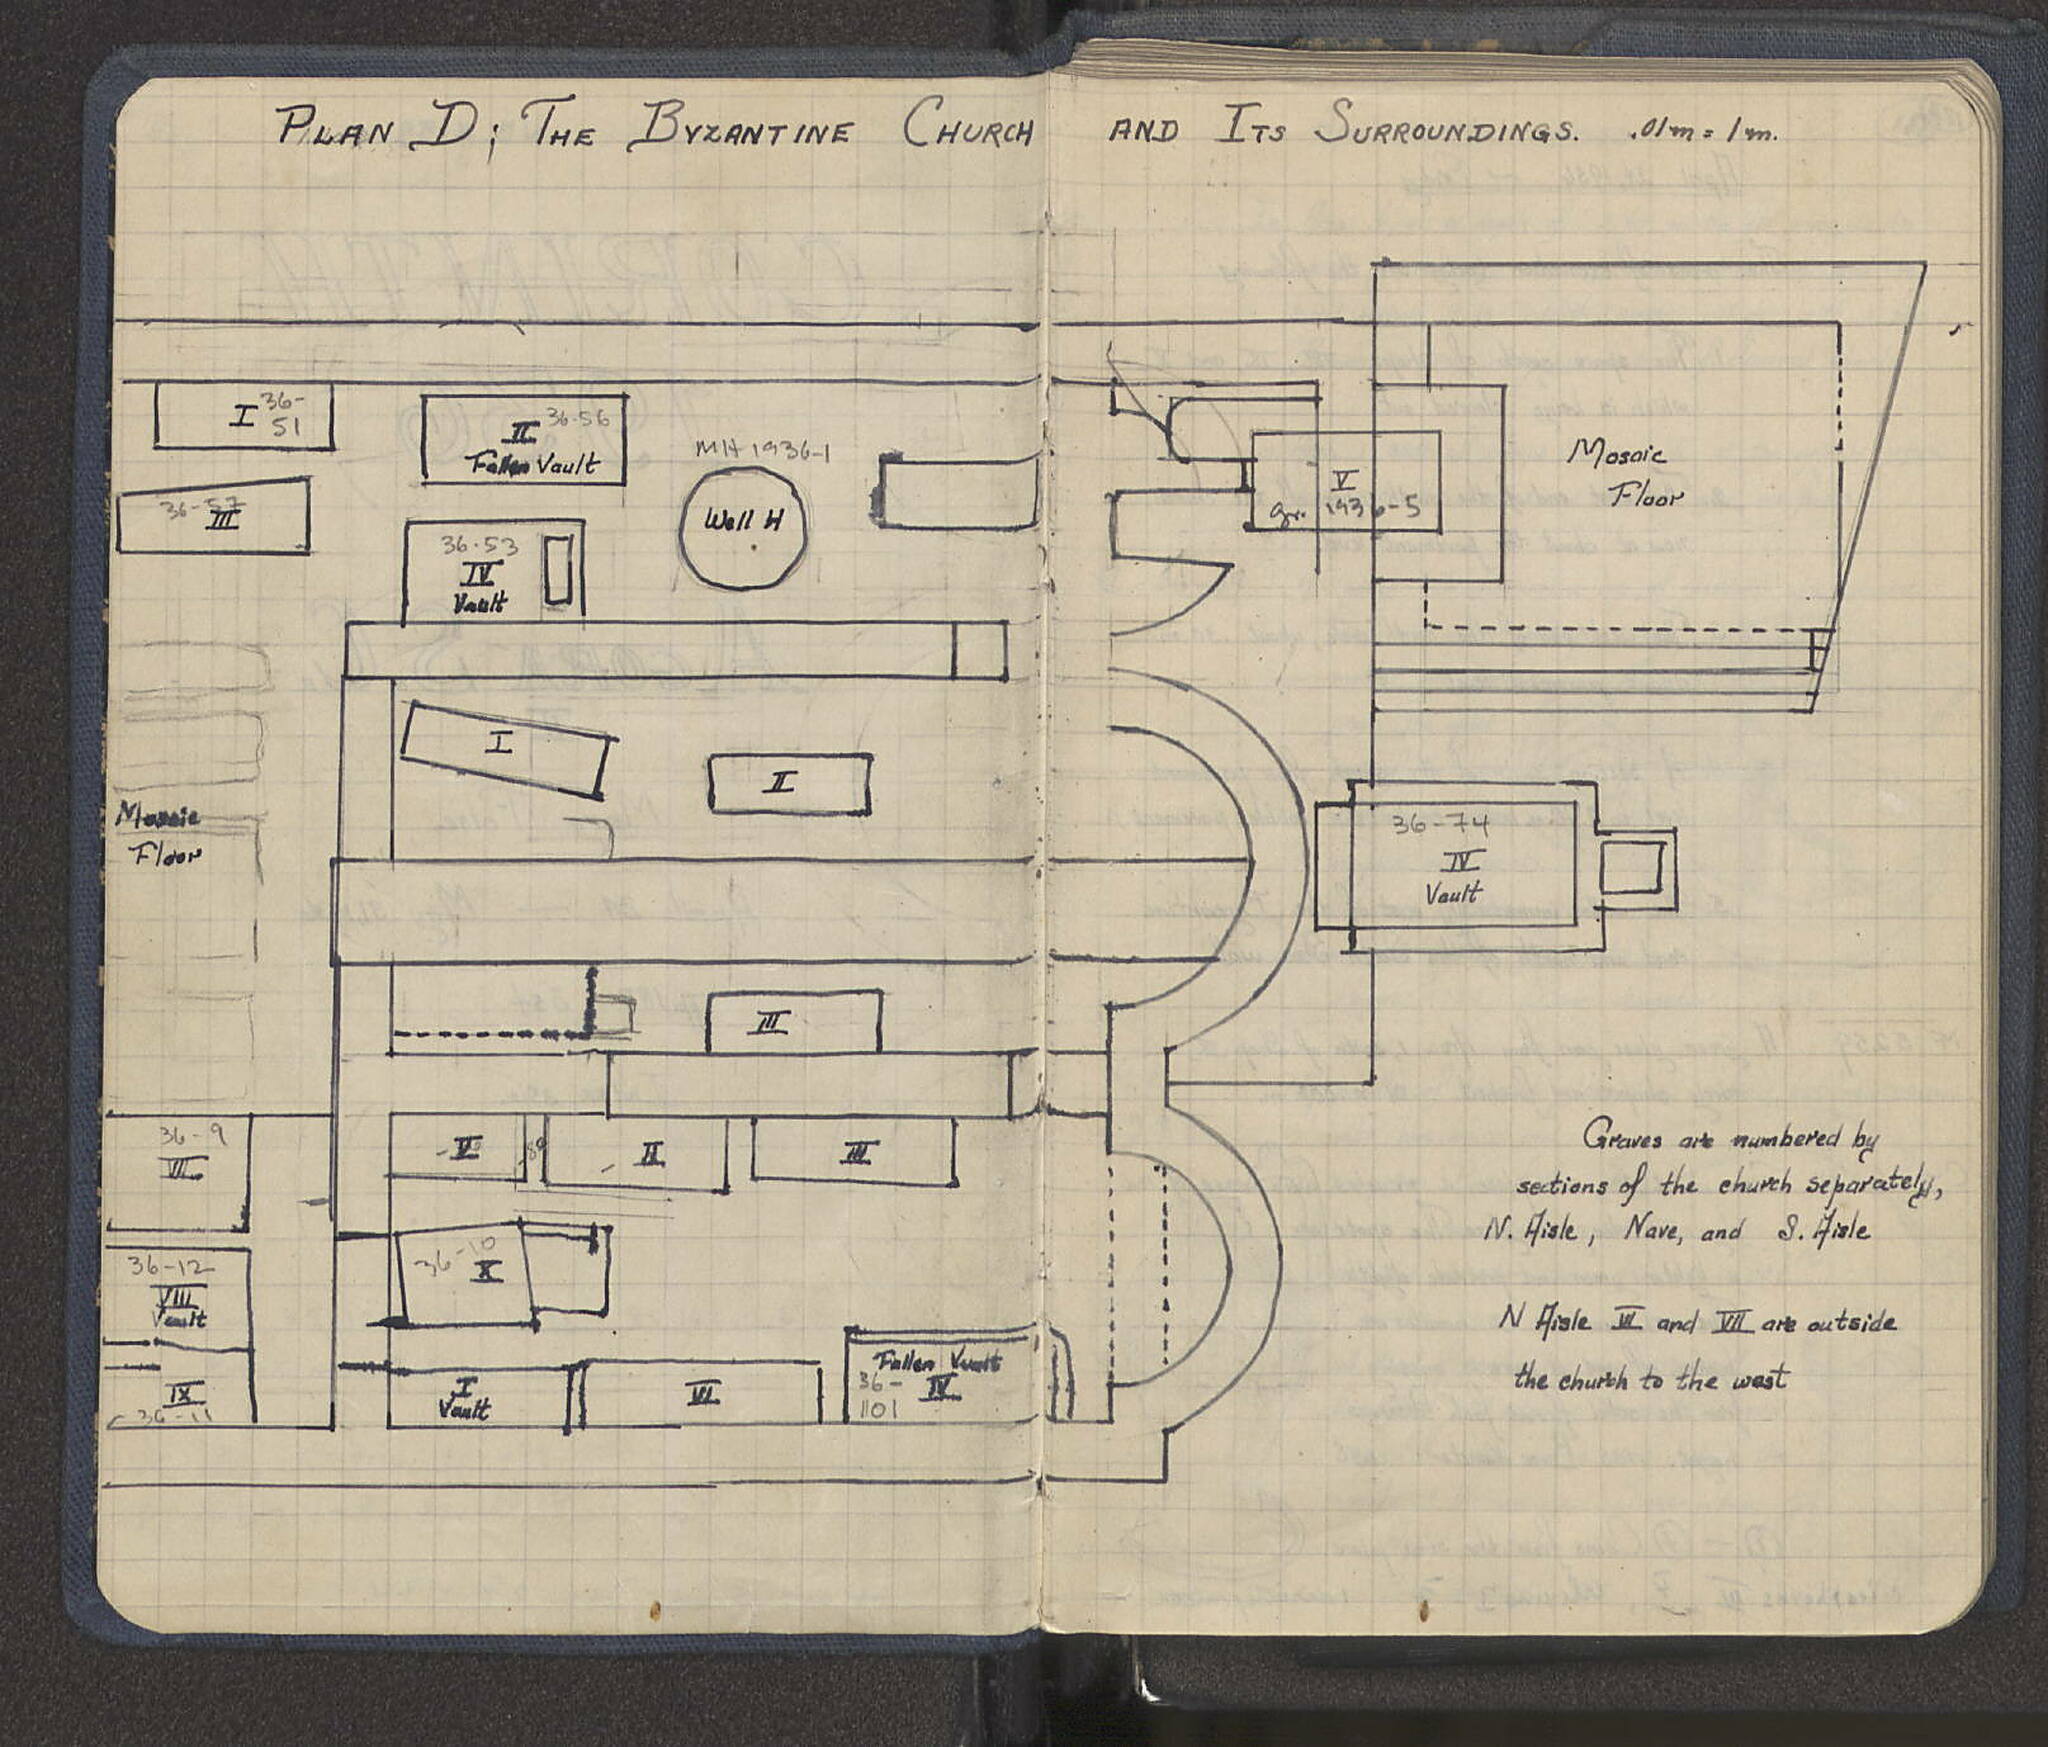 PLAN D; THE BYZANTINE CHURCH AND ITS SURROUNDINGS. .01m = 1m.
I 36-
51
II 36-56
Fallen Vault
MH 1936-1
Well H
36-57
III
36-53
IV
Vault
V
gr. 1936-5
Mosaic
Floor
I
II
Mosaic
Floor
36-74
IV
Vault
III
36-9
VII
V
II
III
36-10
X
36-12
VIII
Vault
IX
36-11
I
Vault
VI
Fallen Vault
36- IV
1101
Graves are numbered by
sections of the church separately,
N. Aisle, Nave, and S. Aisle
N Aisle VI and VII are outside
the church to the west